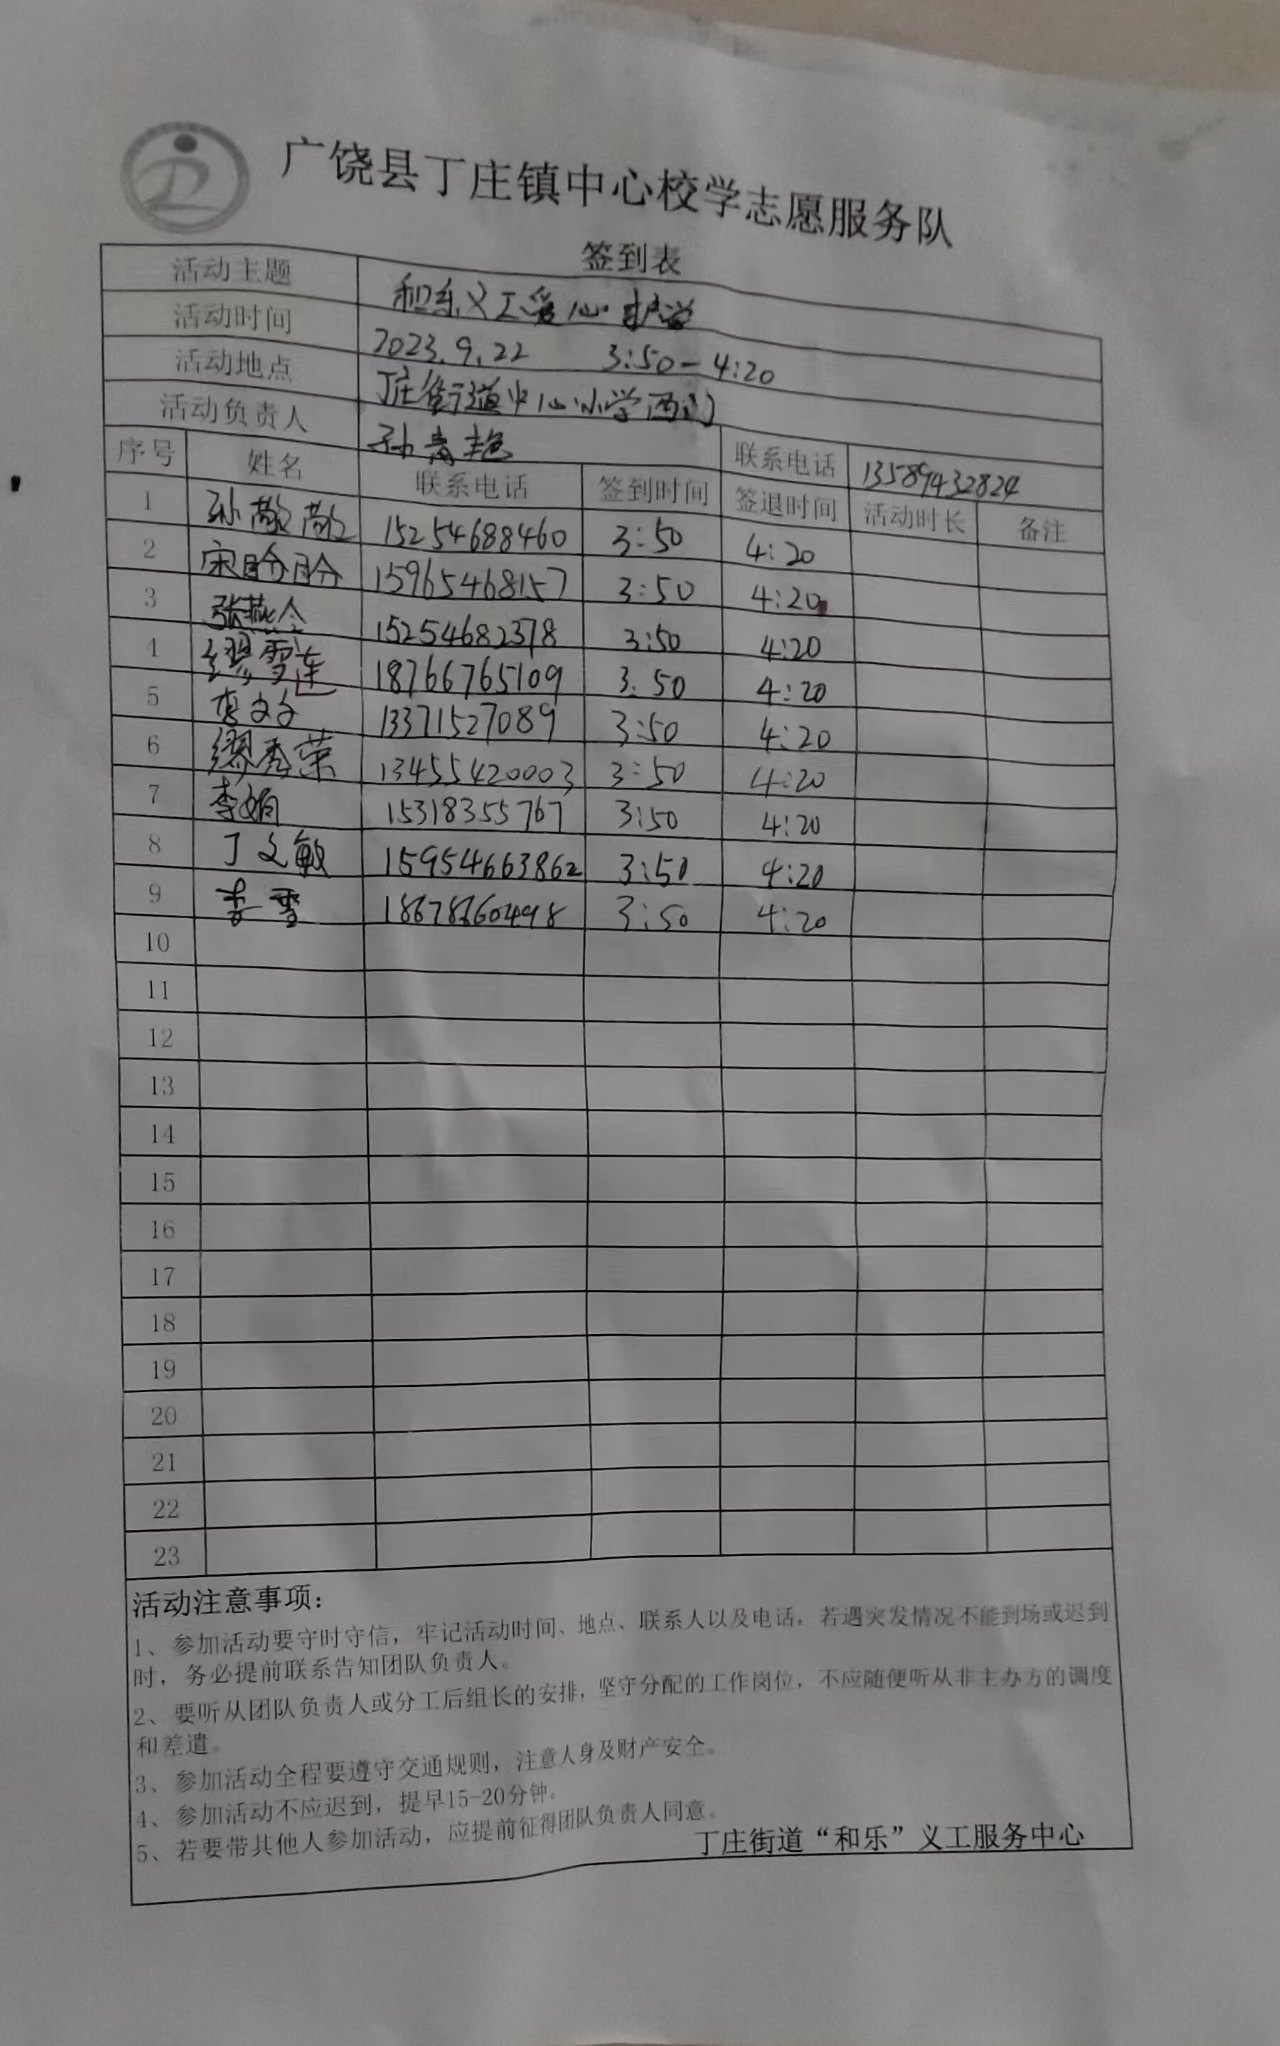 广饶县丁庄镇中心校学志愿服务队
签到表
活动主题 和乐义工爱心护学
活动时间 2023.9.22 3:50-4:20
活动地点 丁庄街道中心小学西门
活动负责人 孙青艳 联系电话 13589432824
序号 姓名 联系电话 签到时间 签退时间 活动时长 备注
1 孙敬敬 15254688460 3:50 4:20
2 宋盼盼 15965468157 3:50 4:20
3 张燕令 15254682378 3:50 4:20
4 缪雪莲 18766765109 3:50 4:20
5 文文 13371527089 3:50 4:20
6 缪秀荣 13455420003 3:50 4:20
7 李娟 15318355767 3:50 4:20
8 丁文敏 15954663862 3:50 4:20
9 3:50 4:20
10
11
12
13
14
15
16
17
18
19
20
21
22
23
活动注意事项:
1、参加活动要守时守信，牢记活动时间、地点、联系人以及电话，若遇突发情况不能到场或迟到
时，务必提前联系告知团队负责人。
2、要听从团队负责人或分工后组长的安排，坚守分配的工作岗位，不应随便听从非主办方的调度
和差遣。
3、参加活动全程要遵守交通规则，注意人身及财产安全。
4、参加活动不应迟到，提早15-20分钟。
5、若要带其他人参加活动，应提前征得团队负责人同意。
丁庄街道“和乐”义工服务中心